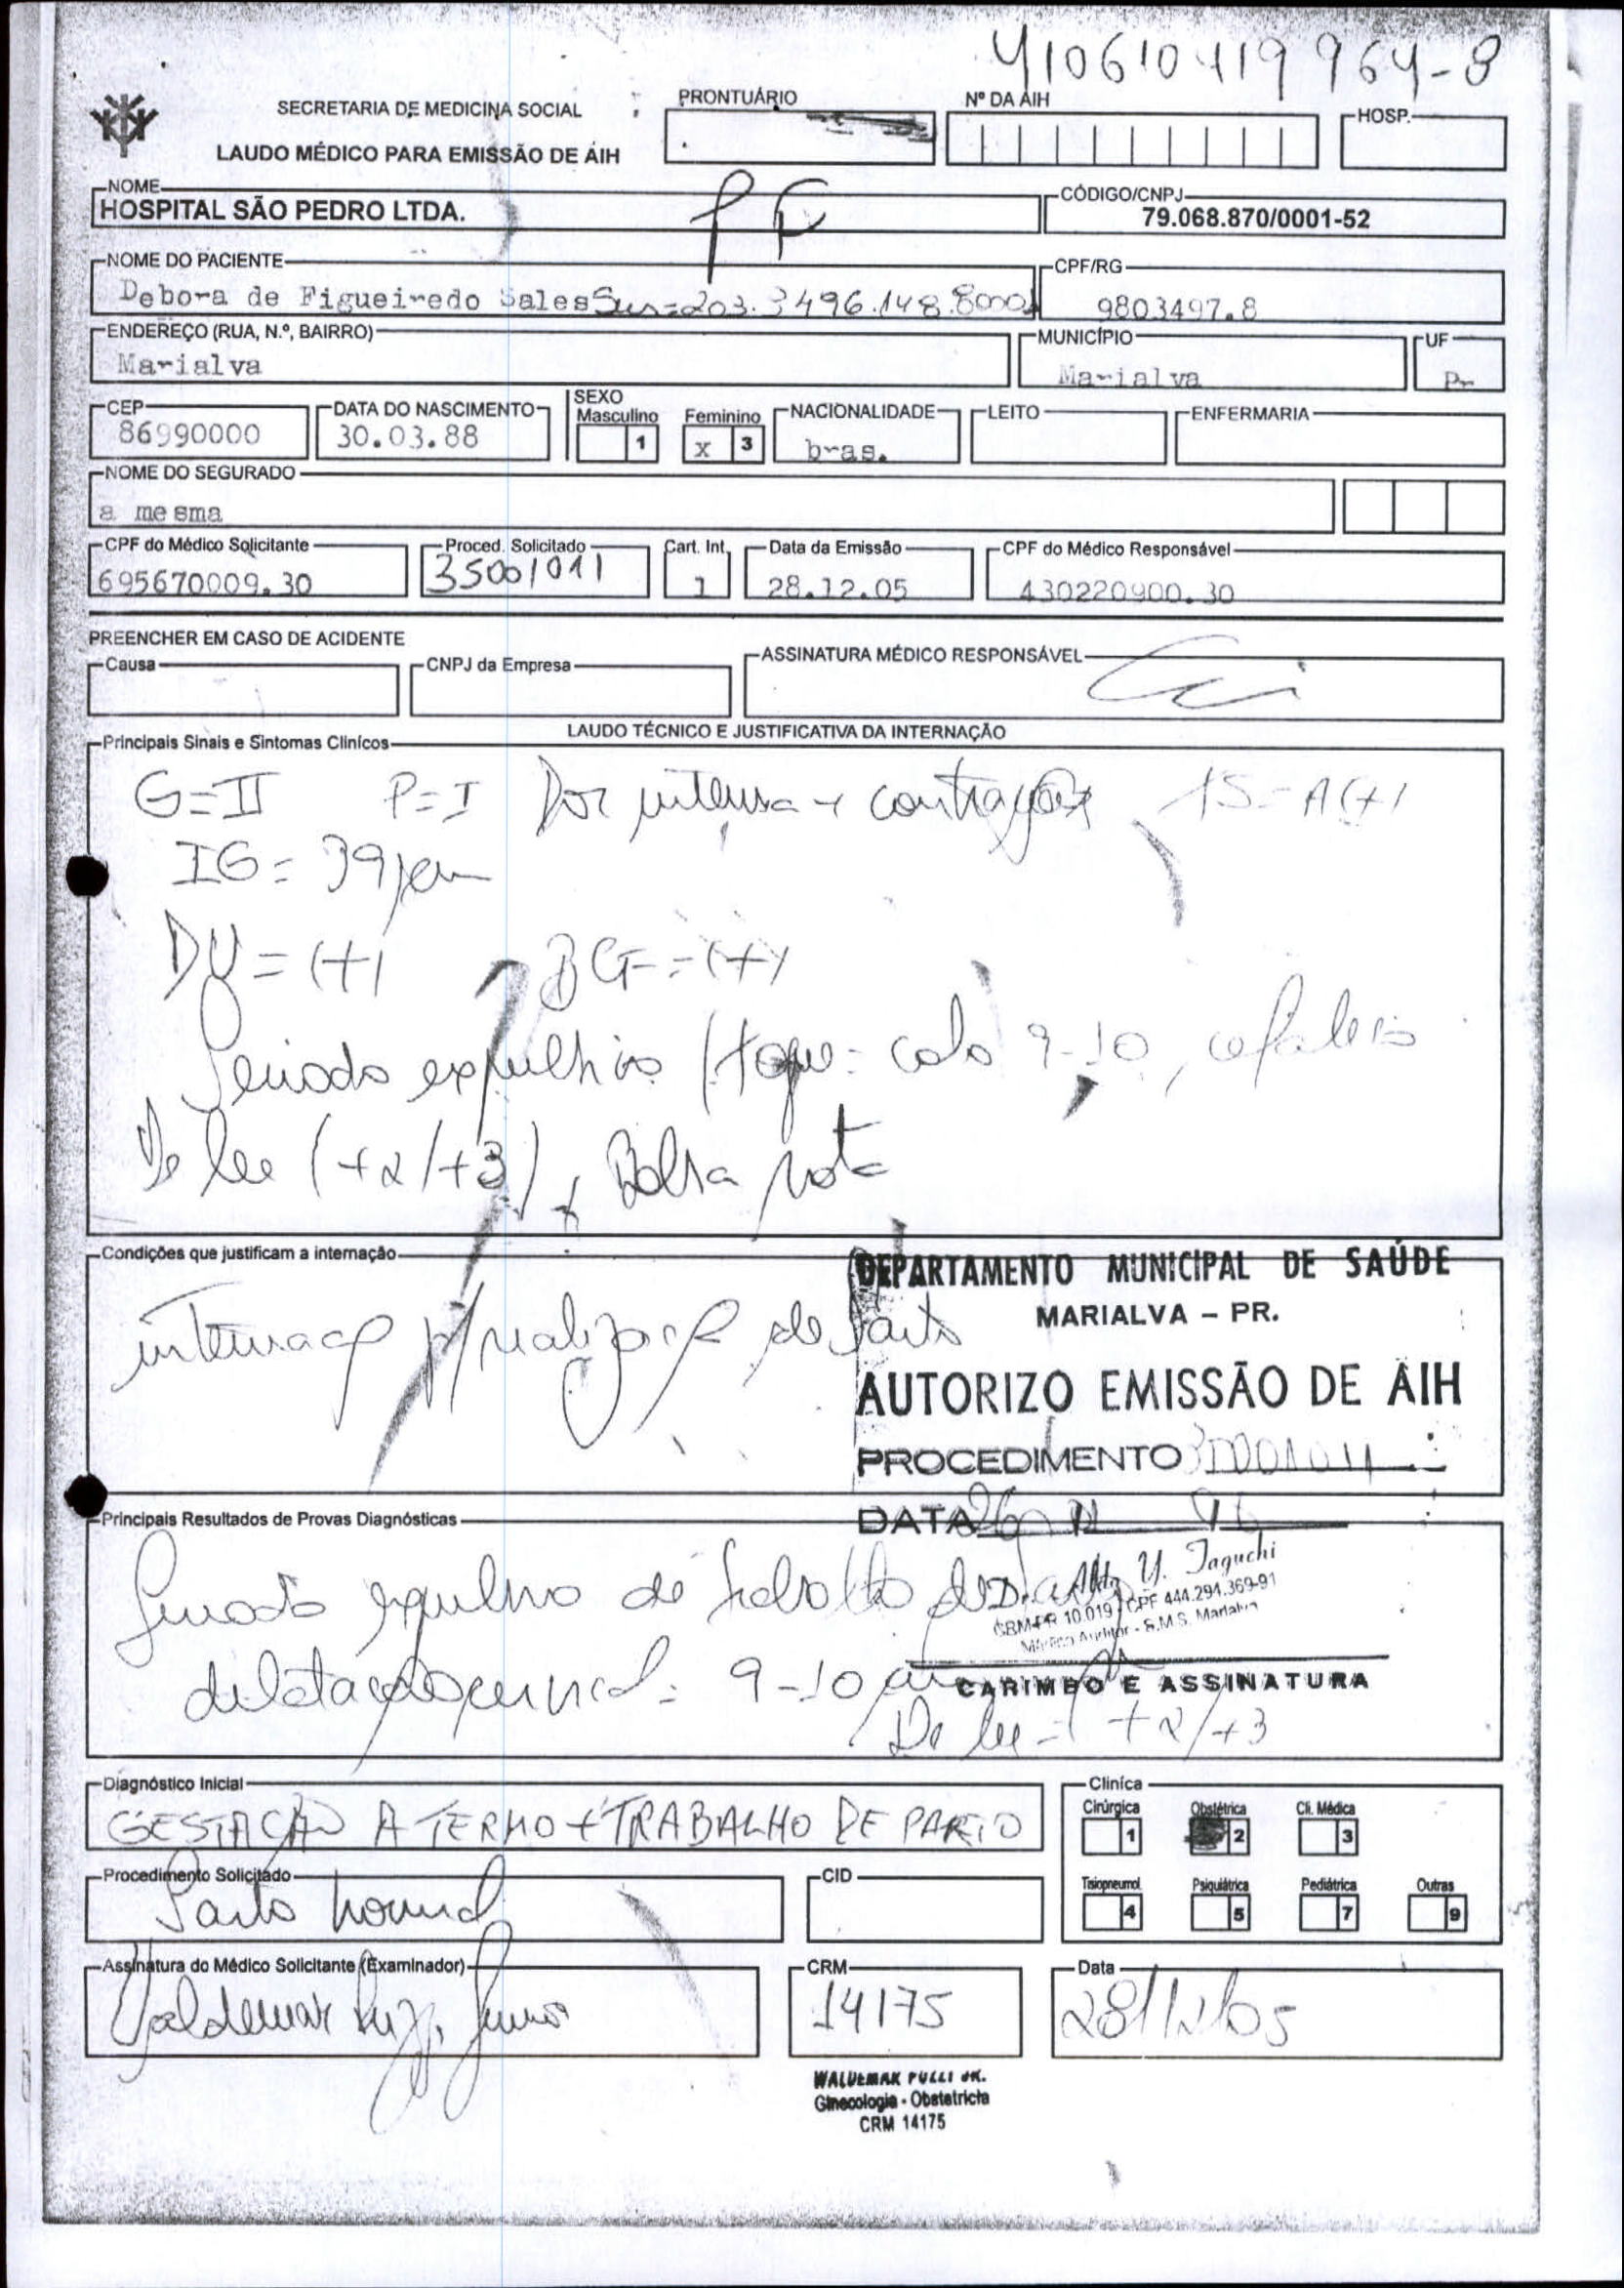 410610419964-8
SECRETARIA DE MEDICINA SOCIAL
LAUDO MÉDICO PARA EMISSÃO DE AIH
PRONTUÁRIO
Nº DA AIH
HOSP.
NOME
HOSPITAL SÃO PEDRO LTDA.
CÓDIGO/CNPJ
79.068.870/0001-52
NOME DO PACIENTE
Debora de Figueiredo Sales Sus=203.3496.148.8000
CPF/RG
9803497.8
ENDEREÇO (RUA, N.º, BAIRRO)
Marialva
MUNICÍPIO
Marialva
UF
Pr
CEP
86990000
DATA DO NASCIMENTO
30.03.88
SEXO
Masculino 1
Feminino x 3
NACIONALIDADE
bras.
LEITO
ENFERMARIA
NOME DO SEGURADO
a mesma
CPF do Médico Solicitante
695670009.30
Proced. Solicitado
35001011
Cart. Int.
1
Data da Emissão
28.12.05
CPF do Médico Responsável
430220900.30
PREENCHER EM CASO DE ACIDENTE
Causa
CNPJ da Empresa
ASSINATURA MÉDICO RESPONSÁVEL
LAUDO TÉCNICO E JUSTIFICATIVA DA INTERNAÇÃO
Principais Sinais e Sintomas Clínicos
G=II P=I Dor intensa + contrações TS=A(+)
IG= 39 sem
DU=(+) BCF=(+)
Periodo expulsivo (toque: colo 9-10, cefalico
De lee (+2/+3), Bolsa rota
Condições que justificam a internação
internação p/ realização de parto
DEPARTAMENTO MUNICIPAL DE SAÚDE
MARIALVA - PR.
AUTORIZO EMISSÃO DE AIH
PROCEDIMENTO
DATA
Principais Resultados de Provas Diagnósticas
Periodo expulsivo de trabalho de parto
Dr. Aldo Y. Taguchi
CRM-PR 10.019 - CPF 444.294.369-91
Médico Auditor - S.M.S. Marialva
dilatação cervical: 9-10 cm
CARIMBO E ASSINATURA
De lee = +2/+3
Diagnóstico Inicial
GESTAÇÃO A TERMO + TRABALHO DE PARTO
Clinica
Cirúrgica 1
Obstétrica 2
Cli. Médica 3
Tisiopneumol. 4
Psiquiátrica 5
Pediátrica 7
Outras 9
Procedimento Solicitado
Parto normal
CID
Assinatura do Médico Solicitante (Examinador)
CRM
14175
Data
28/12/05
WALDEMAR PULZI JR.
Ginecologia - Obstetricia
CRM 14175